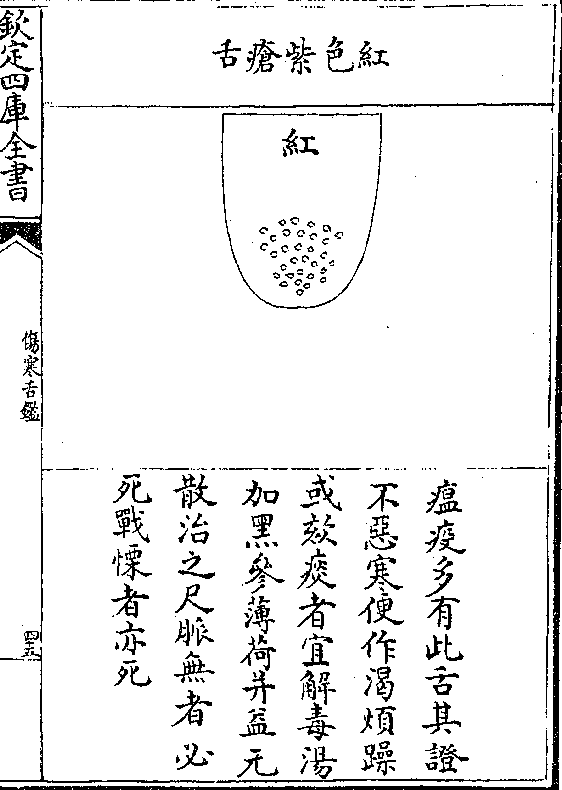 紅色紫瘡舌
紅
瘟疫多有此舌其證
不惡寒便作渴煩躁
或欬痰者宜解毒湯
加黑參薄荷并益元
散治之尺脈無者必
死戰慄者亦死
欽定四庫全書
傷寒舌鑑